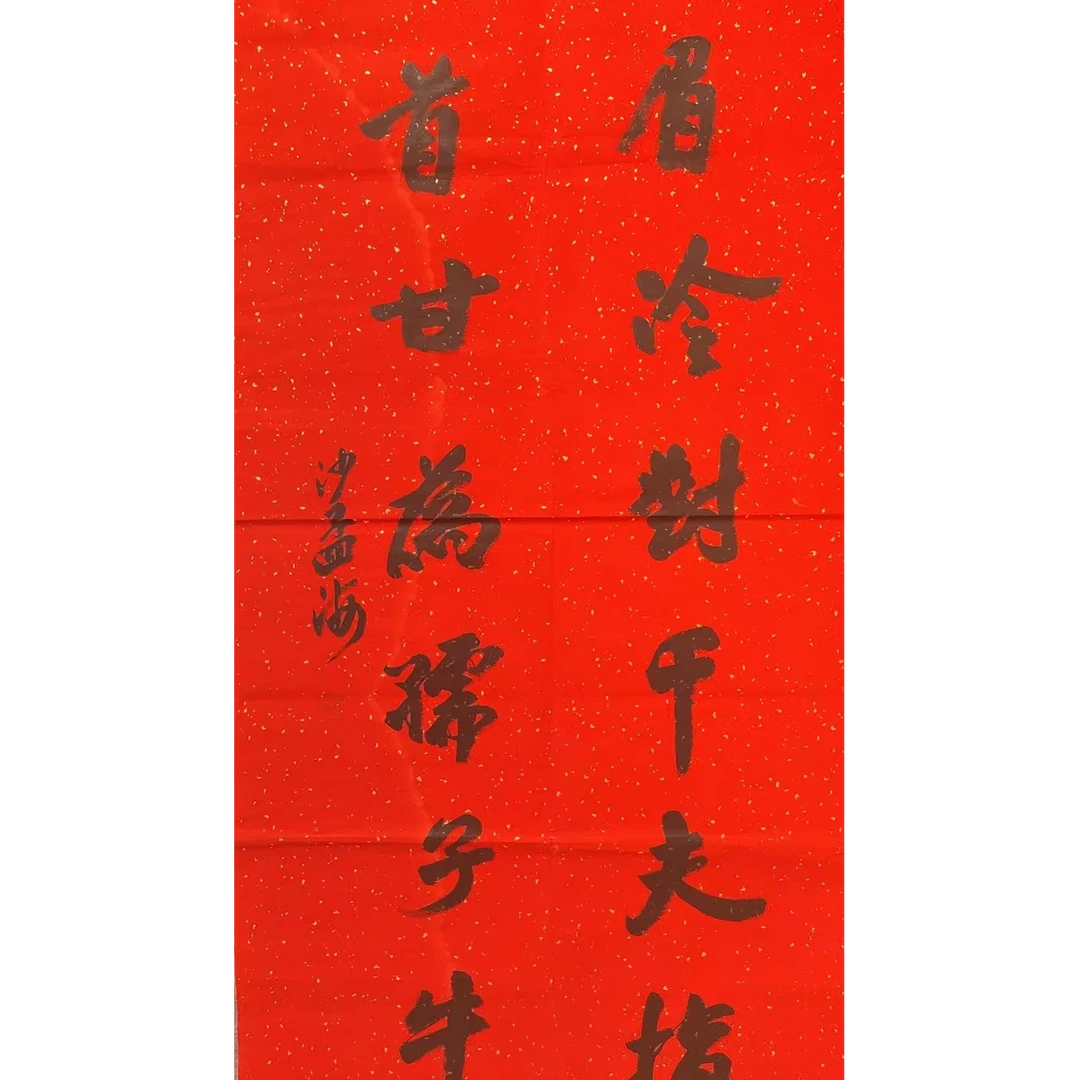 眉冷對千夫指
首甘為孺子牛
沙孟海